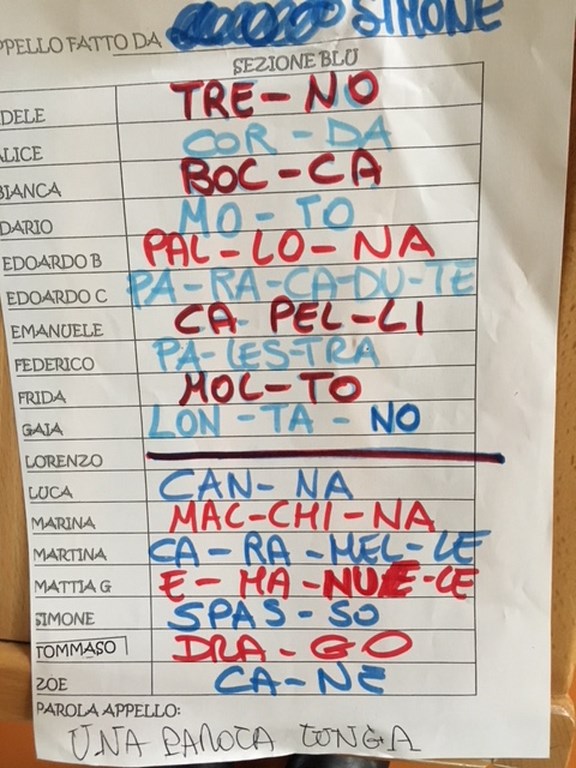 PPELLO FATTO DA SIMONE
SEZIONE BLU
DELE TRE-NO
ALICE COR-DA
BIANCA BOC-CA
DARIO MO-TO
EDOARDO B PAL-LO-NA
EDOARDO C PA-RA-CA-DU-TE
EMANUELE CA PEL-LI
FEDERICO PA-LES-TRA
FRIDA MOL-TO
GAIA LON-TA-NO
LORENZO
LUCA CAN-NA
MARINA MAC-CHI-NA
MARTINA CA-RA-MEL-LE
MATTIA G E-MA-NUE-LE
SIMONE SPAS-SO
TOMMASO DRA-GO
ZOE CA-NE
PAROLA APPELLO:
UNA PAROLA LUNGA